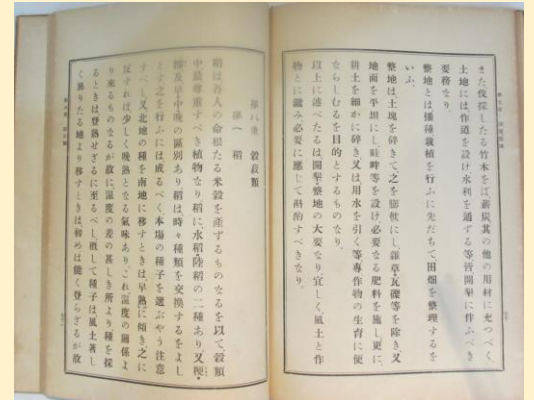 また伐採したる竹木をば薪炭其の他の用材に充つべく、
土地には、作道を設け水利を通ずる等皆開墾に伴ふべき
要務なり。
整地とは播種栽植を行ふに先だちて、田畑を整理するを
いふ。
整地は、土塊を砕きて之を膨軟にし、雑草・瓦礫等を除き、又
地面を平坦にし、畦畔等を設け必要なる肥料を施し、更に、
耕土を細かに砕き、又は用水を引く等專作物の生育に便
ならしむるを目的とするものなり。
以上に述べたるは開墾・整地の大要なり、宜しく、風土と作
物とに鑑み必要に應じて斟酌すべきなり。
第八章 穀菽類
第一 稲
稲は吾人の命根たる米穀を産するものなるを以て、穀類
中、最尊重すべき植物なり。稲に水稲・陸稲の二種あり、又、粳・
糯及早・中・晩の區別あり。稲は、時々種類を交換するをよし
とす。之を行ふには成るべく、本場の種子を選ぶやう注意
すべし。又北地の種を南地に移すときは早熟に傾き、之に
反すれば少しく晩熟となる氣味あり。これ温度の關係よ
り來るものなるが故に、温度の差の甚しき所より種を採
るときは登熟せざるに至るべし。概して種子は風土著し
く異りたる地より移すときは初めは能く登らざるが故